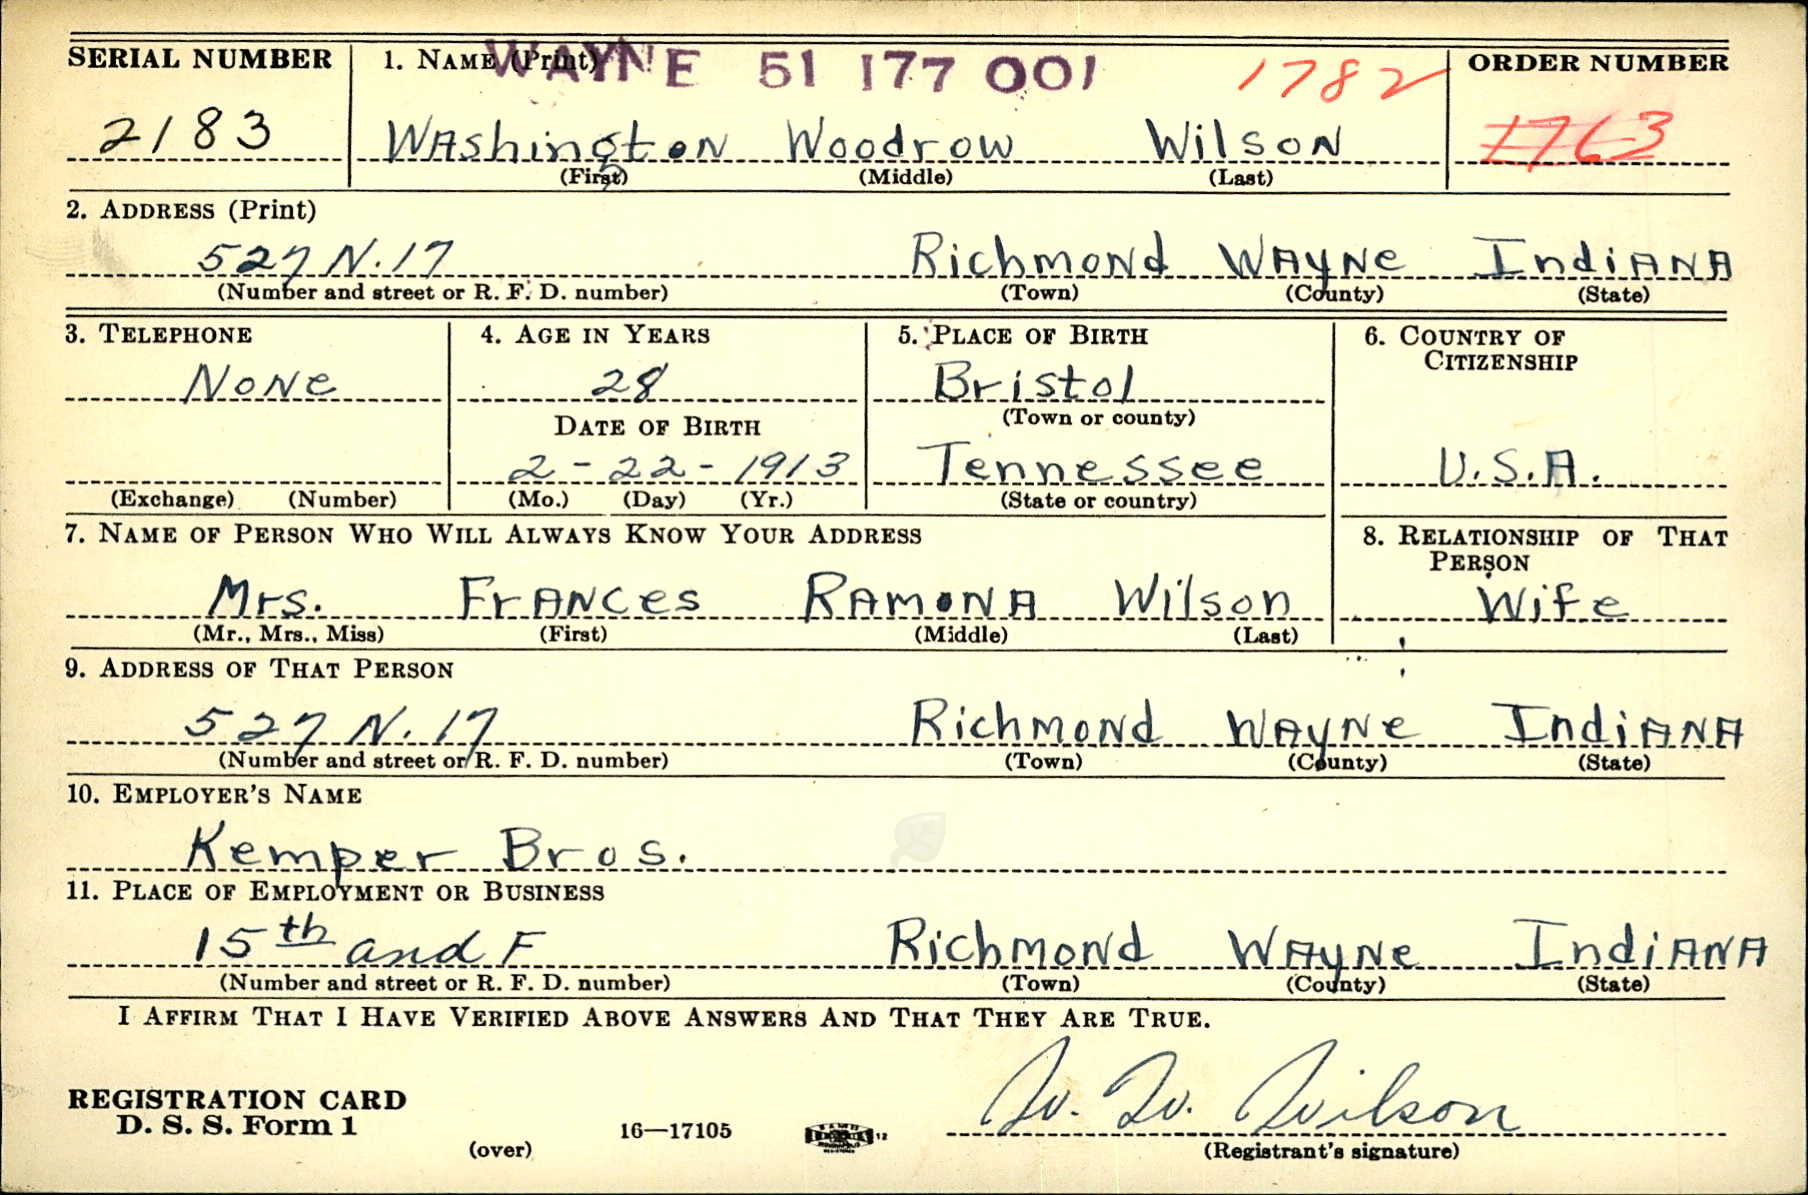 WAYNE 51 177 001
SERIAL NUMBER 1. NAME (Print) 1782 ORDER NUMBER
2183 Washington Woodrow Wilson 1763
(First) (Middle) (Last)
2. ADDRESS (Print)
527 N. 17 Richmond Wayne Indiana
(Number and street or R. F. D. number) (Town) (County) (State)
3. TELEPHONE 4. AGE IN YEARS 5. PLACE OF BIRTH 6. COUNTRY OF
CITIZENSHIP
None 28 Bristol
(Town or county)
DATE OF BIRTH
2-22-1913 Tennessee U.S.A.
(Exchange) (Number) (Mo.) (Day) (Yr.) (State or country)
7. NAME OF PERSON WHO WILL ALWAYS KNOW YOUR ADDRESS 8. RELATIONSHIP OF THAT
PERSON
Mrs. Frances Ramona Wilson Wife
(Mr., Mrs., Miss) (First) (Middle) (Last)
9. ADDRESS OF THAT PERSON
527 N. 17 Richmond Wayne Indiana
(Number and street or R. F. D. number) (Town) (County) (State)
10. EMPLOYER'S NAME
Kemper Bros.
11. PLACE OF EMPLOYMENT OR BUSINESS
15th and F Richmond Wayne Indiana
(Number and street or R. F. D. number) (Town) (County) (State)
I AFFIRM THAT I HAVE VERIFIED ABOVE ANSWERS AND THAT THEY ARE TRUE.
REGISTRATION CARD
D. S. S. Form 1 W. W. Wilson
(over) 16—17105 12 (Registrant's signature)